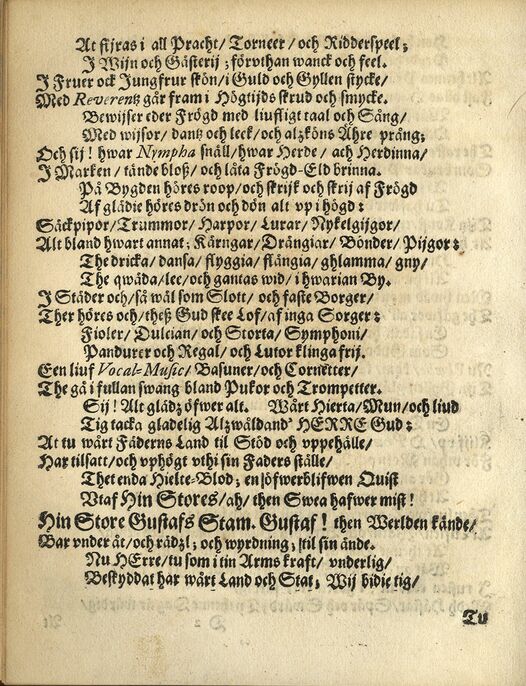 At stjras i all Pracht/ Torneer/ och Ridderspeel;
J Wijn och Gästerij; förvthan wanck och feel.
J Fruer ock Jungfrur skön/ i Guld och Gyllen stycke/
Med Reverentz går fram i Högtijds skrud och smycke.
Bewijser eder Frögd med liufligt taal och Sång/
Med wijsor/ dantz och leck/ och alzköns Ähre prång;
Och sij! hwar Nympha snäll/ hwar Herde/ ach Herdinna/
J Marken/ tände bloß/ och låta Frögd-Eld brinna.
På Bygden höres roop/ och skrijk och skrij af Frögd
Af glädie höres drön och dön alt vp i högd:
Säckpipor/ Trummor/ Harpor/ Lurar/ Nykelgijgor/
Alt bland hwart annat; Kärngar/ Drängiar/ Bönder/ Pijgor:
The dricka/ dansa/ flyggia/ flängia/ ghlamma/ gny/
The qwäda/ lee/ och gantas wid/ i hwarian By.
J Städer och/ så wäl som Slott/ och faste Borger/
Ther höres och/ theß Gud skee Lof/ af inga Sorger:
Fioler/ Dulcian/ och Storta/ Symphoni/
Pandurer och Regal/ och Lutor klinga frij.
Een liuf Vocal-Music/ Basuner/ och Cornetter/
The gå i fullan swang bland Pukor och Trompetter.
Sij! Alt glädz öfwer alt. Wårt Hierta/ Mun/ och liud
Tig tacka gladelig Alzwäldand' HERRE Gud:
At tu wårt Fäderns Land til Stöd och vppehälle/
Har tilsatt/ och vphögt vthi sin Faders ställe/
Thet enda Hielte-Blod; en/ öfwerblifwen Quist
Vtaf Hin Stores/ ah/ then Swea hafwer mist!
Hin Store Gustafs Stam. Gustaf! then Werlden kände/
Bar vnder åt/ och rädzl; och wyrdning; til sin ände.
Nu HErre/ tu som i tin Arms kraft/ vnderlig/
Beskyddat har wårt Land och Stat; Wij bidie tig/
Tu